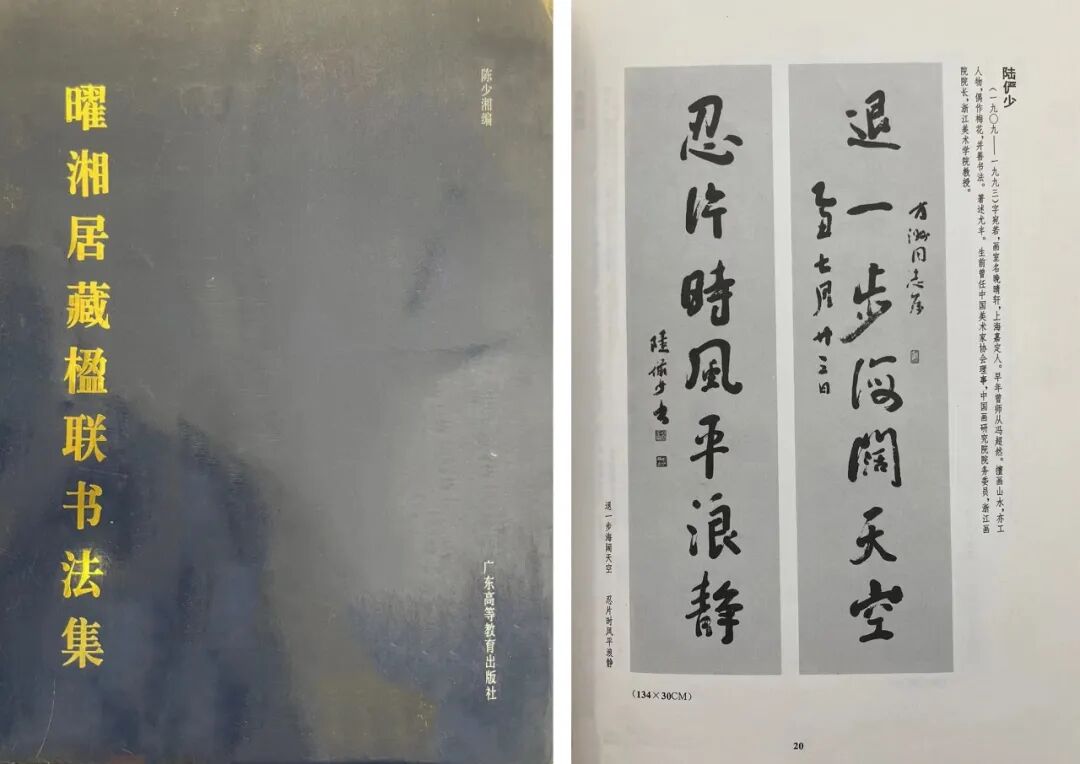 陈少湘编
曜湘居藏楹联书法集
广东高等教育出版社
陆俨少
（一九〇九——一九九三）字宛若，画室名晚晴轩，上海嘉定人。早年曾师从冯超然。擅画山水，亦工
人物，偶作梅花，并善书法。著述尤丰。生前曾任中国美术家协会理事，中国画研究院院务委员，浙江画
院院长，浙江美术学院教授。
同志属
退一步海阔天空
乙丑七月廿三日
忍片時風平浪静
陸儼少书
退一步海阔天空 忍片时风平浪静
（134×30CM）
20